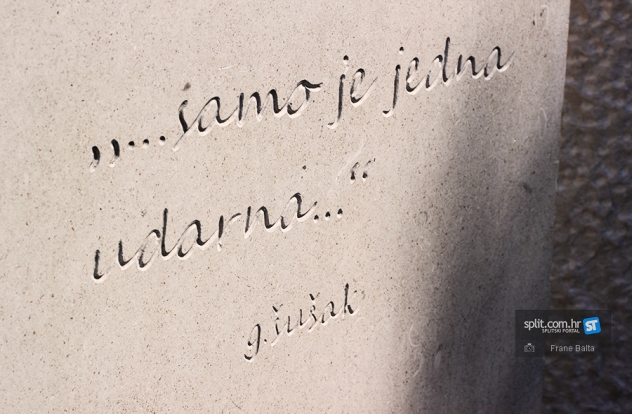 „...samo je jedna
udarna...“
g. šušak
split.com.hr ST
SPLITSKI PORTAL
Frane Balta